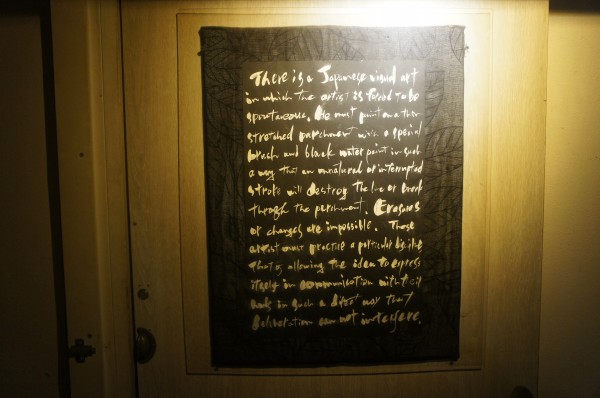 There is a Japanese visual art
in which the artist is forced to be
spontaneous. He must paint on a thin
stretched parchment with a special
brush and black water paint in such
a way that an unnatural or interrupted
stroke will destroy the line or break
through the parchment. Erasures
or changes are impossible. These
artist must practice a particular discipline
that of allowing the idea to express
itself in communication with their
hands in such a direct way that
deliberation can not interfere.